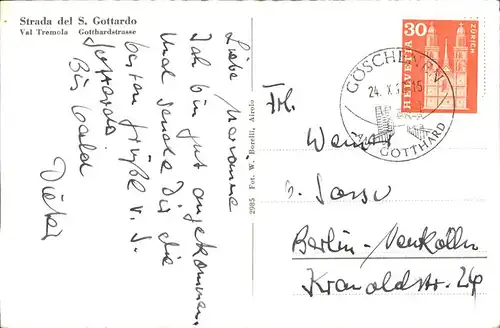 Strada del S. Gottardo
Val Tremola Gotthardstrasse
Liebe Marianne
Ich bin gut angekommen
und sende Dir die
besten Grüße v. S.
Gottardo
Bis bald
Dieter
2985 Fot. W. Borelli, Airolo
HELVETIA
30
ZÜRICH
GÖSCHENEN
24. X.
15
GOTTHARD
Frl.
Berlin-Neukölln
Kranoldstr. 24